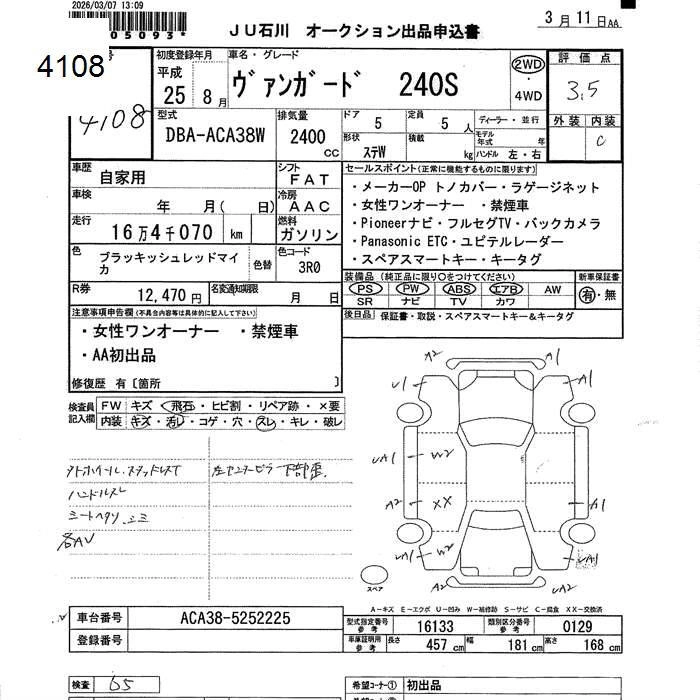 2026/03/07 13:09
05093*
JU石川 オークション出品申込書
3月11日AA
4108
4108
初度登録年月
平成
25 8月
車名・グレード
ヴァンガード 240S
2WD
・
4WD
評価点
3.5
外装 内装
C
型式
DBA-ACA38W
排気量
2400
CC
ドア 5
定員 5 人
ディーラー・並行
形状 ステW
積載 kg
モデル年式 年
ハンドル 左・右
車歴
自家用
シフト
FAT
車検
年 月( 日)
冷房
AAC
走行
16万4千070 km
燃料
ガソリン
色
ブラッキッシュレッドマイカ
色替
色コード
3R0
R券
12,470円
名変通知期限
月 日
セールスポイント(正常に機能するものに限ります)
・メーカーOP トノカバー・ラゲージネット
・女性ワンオーナー ・禁煙車
・Pioneerナビ・フルセグTV・バックカメラ
・Panasonic ETC・ユピテルレーダー
・スペアスマートキー・キータグ
装備品 (純正品に限り○をつけてください)
新車保証書
PS PW ABS エアB AW
SR ナビ TV カワ
有・無
後日品 保証書・取説・スペアスマートキー&キータグ
注意事項申告欄(不具合内容等は具体的に記入して下さい)
・女性ワンオーナー ・禁煙車
・AA初出品
修復歴 有〔箇所 〕
検査員記入欄
FW キズ・飛石・ヒビ割・リペア跡・×要
内装 キズ・汚レ・コゲ・穴・スレ・キレ・破レ
左センターピラー下部歪
ハンドルスレ
シートヘタリ、シミ
各AU
A2
A1
U1
A1
UA1
W2
A2
XX
A1
UA1
W2
UA1
A2
UA2
スペア
A-キズ E-エクボ U-凹み W-補修跡 S-サビ C-腐食 XX-交換済
車台番号 ACA38-5252225
登録番号
型式指定番号 参考 16133
類別区分番号 参考 0129
車庫証明用 参考 長さ 457cm 幅 181cm 高さ 168cm
検査 65
希望コーナー① 初出品
希望コーナー②